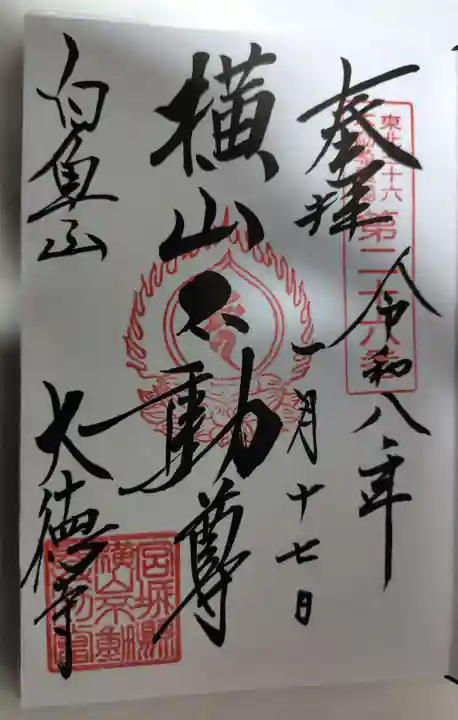 奉拝
令和八年
一月十七日
横山不動尊
白魚山
大徳寺
東北三十六
第二十六番
宮城縣
横山不動